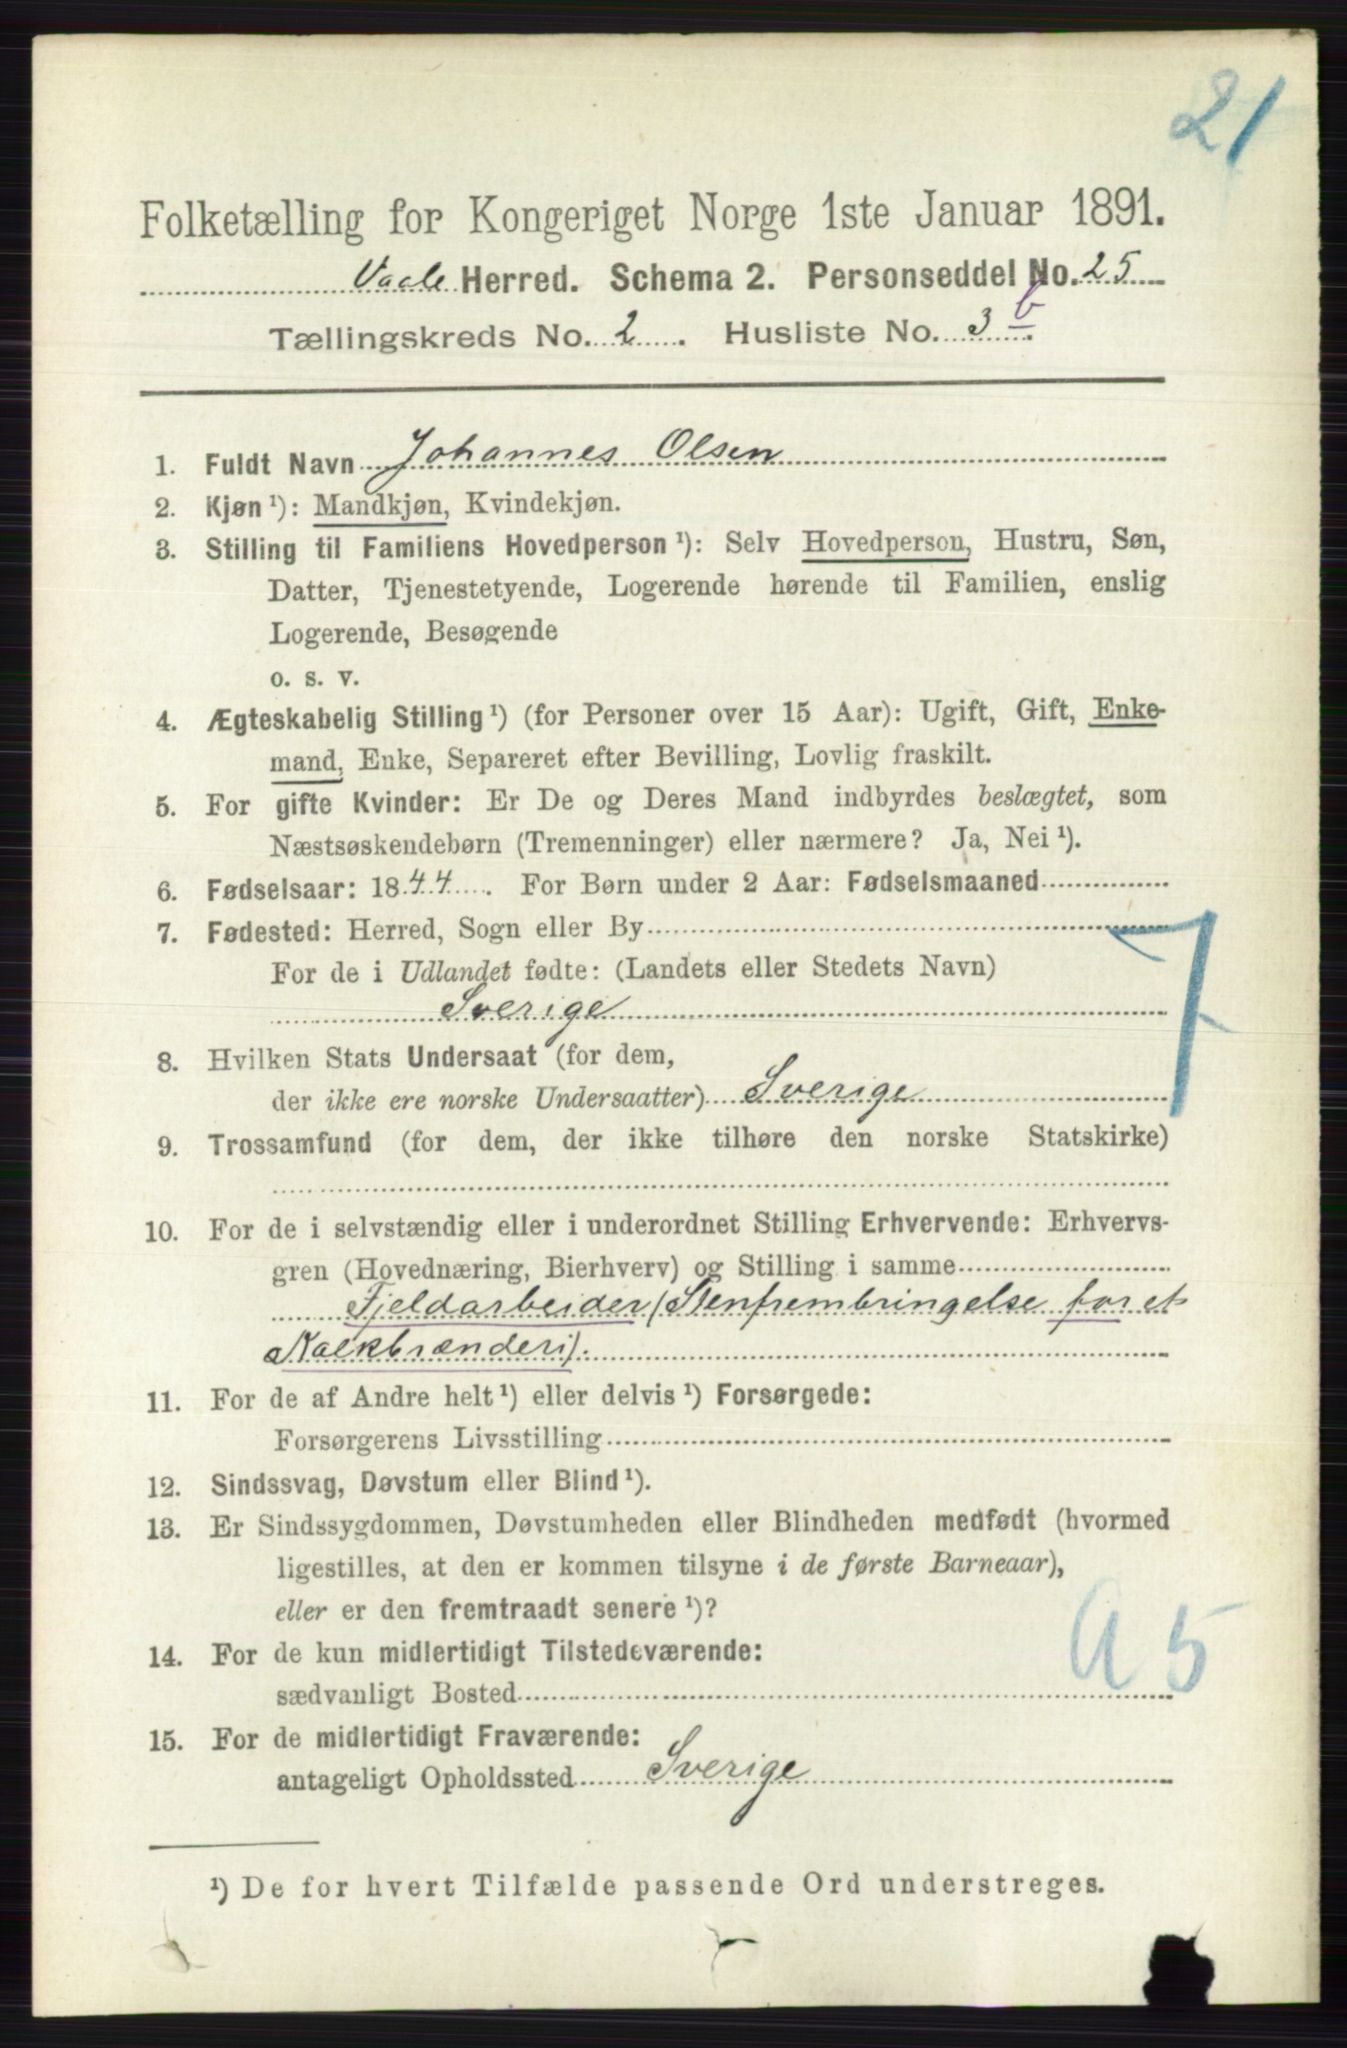 21
Folketælling for Kongeriget Norge 1ste Januar 1891.
Vaale Herred. Schema 2. Personseddel No. 25
Tællingskreds No. 2. Husliste No. 3 b.
1. Fuldt Navn Johannes Olsen
2. Kjøn ¹): Mandkjøn, Kvindekjøn.
3. Stilling til Familiens Hovedperson ¹): Selv Hovedperson, Hustru, Søn,
Datter, Tjenestetyende, Logerende hørende til Familien, enslig
Logerende, Besøgende
o. s. v.
4. Ægteskabelig Stilling ¹) (for Personer over 15 Aar): Ugift, Gift, Enke-
mand, Enke, Separeret efter Bevilling, Lovlig fraskilt.
5. For gifte Kvinder: Er De og Deres Mand indbyrdes beslægtet, som
Næstsøskendebørn (Tremenninger) eller nærmere? Ja, Nei ¹).
6. Fødselsaar: 1844. For Børn under 2 Aar: Fødselsmaaned
7. Fødested: Herred, Sogn eller By
For de i Udlandet fødte: (Landets eller Stedets Navn)
Sverige
7
8. Hvilken Stats Undersaat (for dem,
der ikke ere norske Undersaatter) Sverige
9. Trossamfund (for dem, der ikke tilhøre den norske Statskirke)
10. For de i selvstændig eller i underordnet Stilling Erhvervende: Erhvervs-
gren (Hovednæring, Bierhverv) og Stilling i samme
Fjeldarbeider (Stenfrembringelse for et
Kalkbrænderi).
11. For de af Andre helt ¹) eller delvis ¹) Forsørgede:
Forsørgerens Livsstilling
12. Sindssvag, Døvstum eller Blind ¹).
13. Er Sindssygdommen, Døvstumheden eller Blindheden medfødt (hvormed
ligestilles, at den er kommen tilsyne i de første Barneaar),
eller er den fremtraadt senere ¹)?
a 5
14. For de kun midlertidigt Tilstedeværende:
sædvanligt Bosted
15. For de midlertidigt Fraværende:
antageligt Opholdssted Sverige
¹) De for hvert Tilfælde passende Ord understreges.